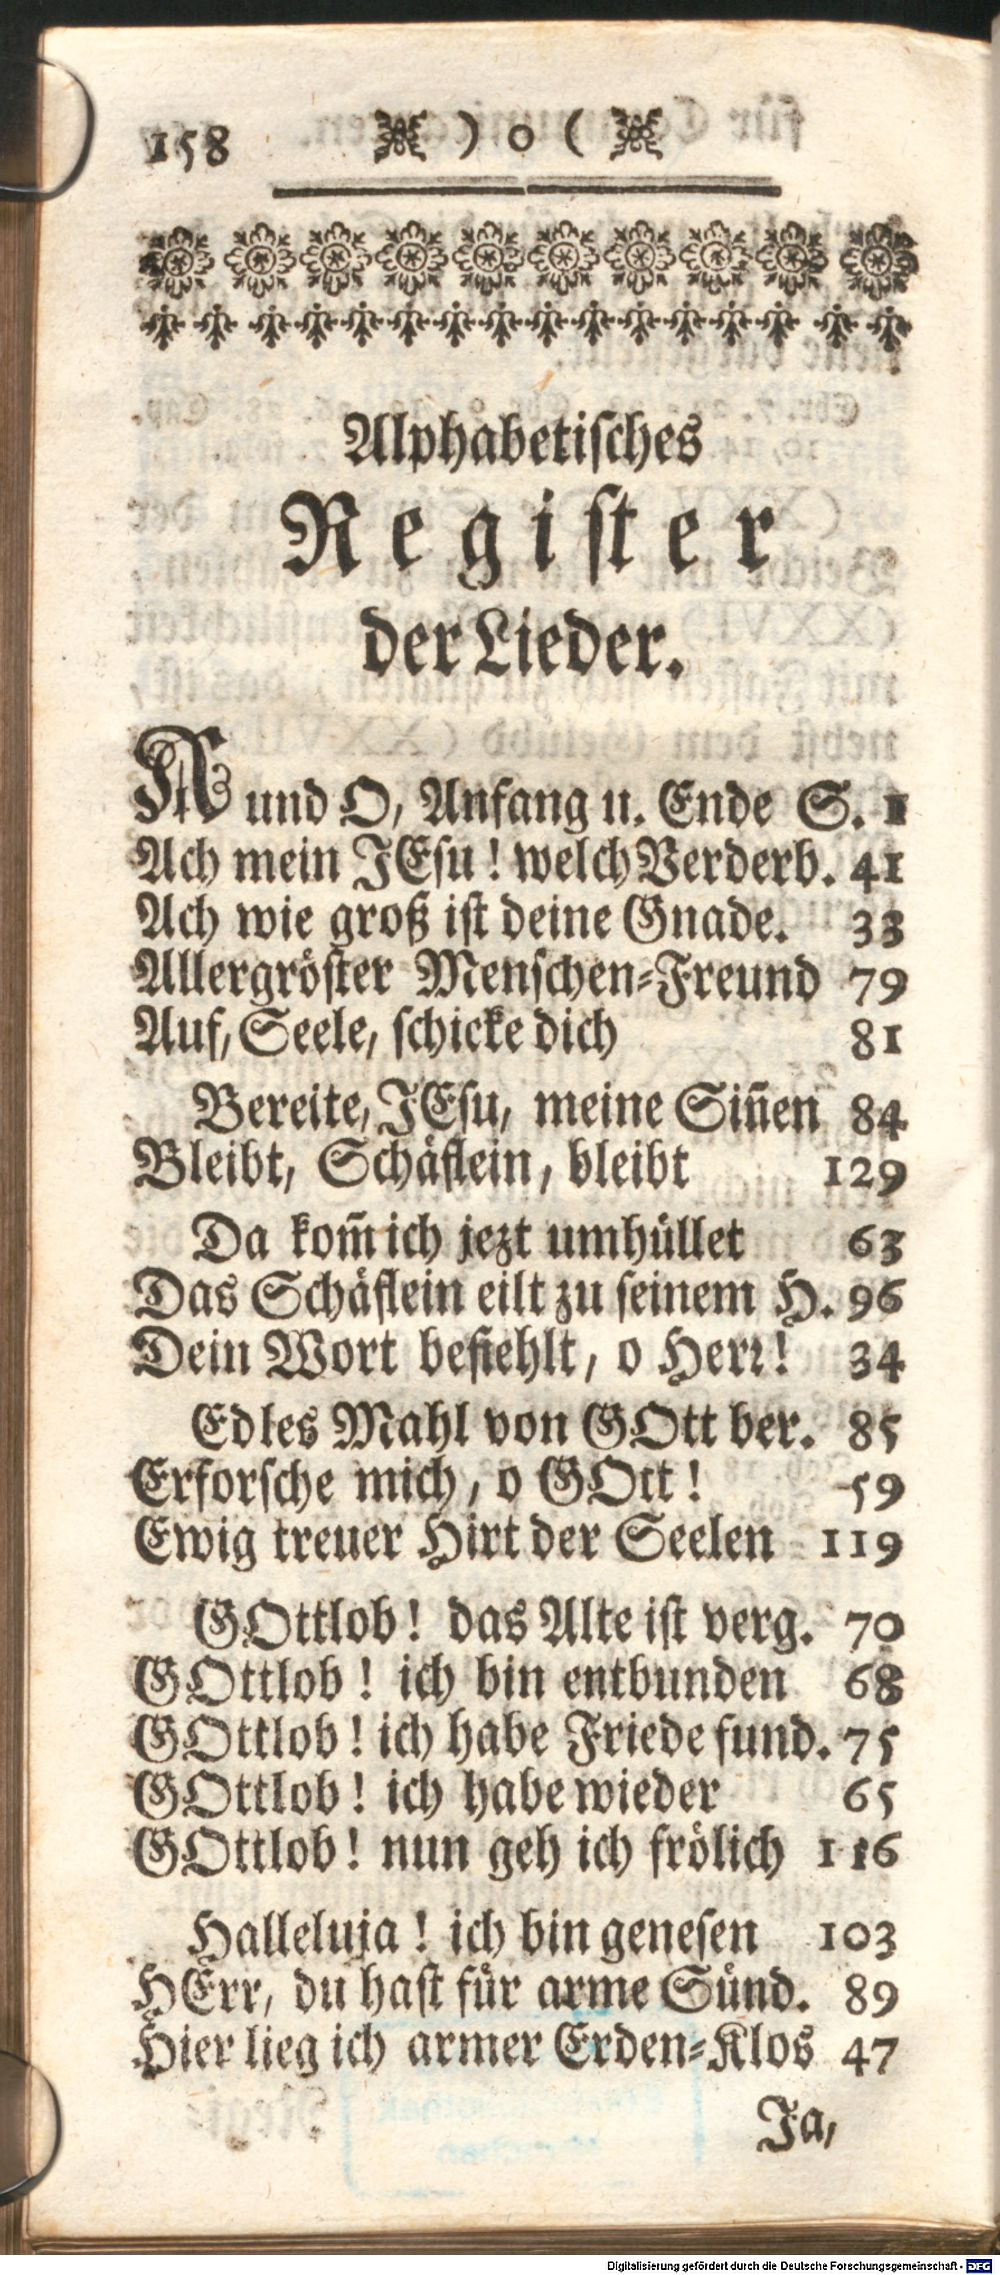 158 ) o (
Alphabetisches
Register
der Lieder.
A und O, Anfang u. Ende S. 1
Ach mein JEsu! welch Verderb. 41
Ach wie groß ist deine Gnade. 33
Allergröster Menschen-Freund 79
Auf, Seele, schicke dich 81
Bereite, JEsu, meine Sin̄en 84
Bleibt, Schäflein, bleibt 129
Da kom̄ ich jezt umhüllet 63
Das Schäflein eilt zu seinem H. 96
Dein Wort befiehlt, o Herr! 34
Edles Mahl von GOtt ber. 85
Erforsche mich, o GOtt! 59
Ewig treuer Hirt der Seelen 119
GOttlob! das Alte ist verg. 70
GOttlob! ich bin entbunden 68
GOttlob! ich habe Friede fund. 75
GOttlob! ich habe wieder 65
GOttlob! nun geh ich frölich 116
Halleluja! ich bin genesen 103
HErr, du hast für arme Sünd. 89
Hier lieg ich armer Erden-Klos 47
Ja,
Digitalisierung gefördert durch die Deutsche Forschungsgemeinschaft - DFG